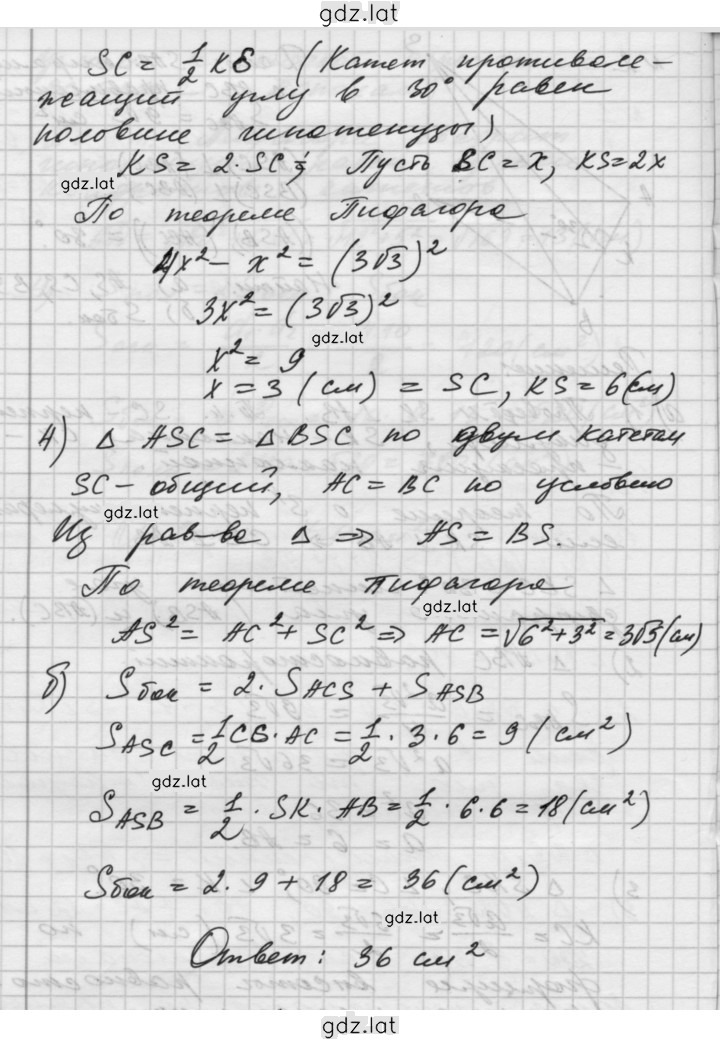 gdz.lat
SC = 1/2 KS (Катет противоле-
жащий углу в 30° равен
половине гипотенузы)
KS = 2·SC; Пусть SC = x, KS = 2x
gdz.lat
По теореме Пифагора
4x² - x² = (3√3)²
3x² = (3√3)²
gdz.lat
x² = 9
x = 3 (см) = SC, KS = 6 (см)
4) △ ASC = △ BSC по двум катетам
SC - общий, AC = BC по условию
gdz.lat
Из рав-ва △ ⇒ AS = BS.
По теореме Пифагора
gdz.lat
AS² = AC² + SC² ⇒ AC = √6²+3² = 3√5 (см)
б) Sбок = 2·S ACS + S ASB
S ASC = 1/2 CS·AC = 1/2·3·6 = 9 (см²)
gdz.lat
S ASB = 1/2·SK·AB = 1/2·6·6 = 18 (см²)
Sбок = 2·9 + 18 = 36 (см²)
gdz.lat
Ответ: 36 см²
gdz.lat